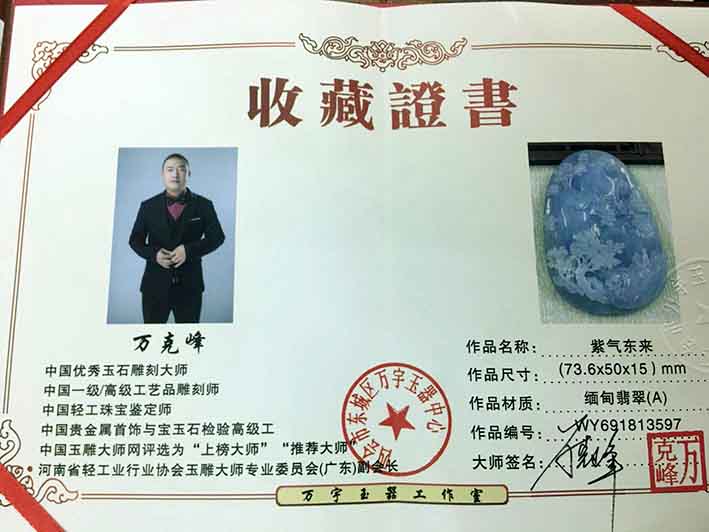 收藏證書
万克峰
中国优秀玉石雕刻大师
中国一级/高级工艺品雕刻师
中国轻工珠宝鉴定师
中国贵金属首饰与宝玉石检验高级工
中国玉雕大师网评选为“上榜大师”“推荐大师”
河南省轻工业行业协会玉雕大师专业委员会(广东)副会长
四会市东城区万宇玉器中心
作品名称: 紫气东来
作品尺寸: (73.6x50x15) mm
作品材质: 缅甸翡翠(A)
作品编号: WY691813597
大师签名: 万克峰
万克峰
万宇玉器工作室